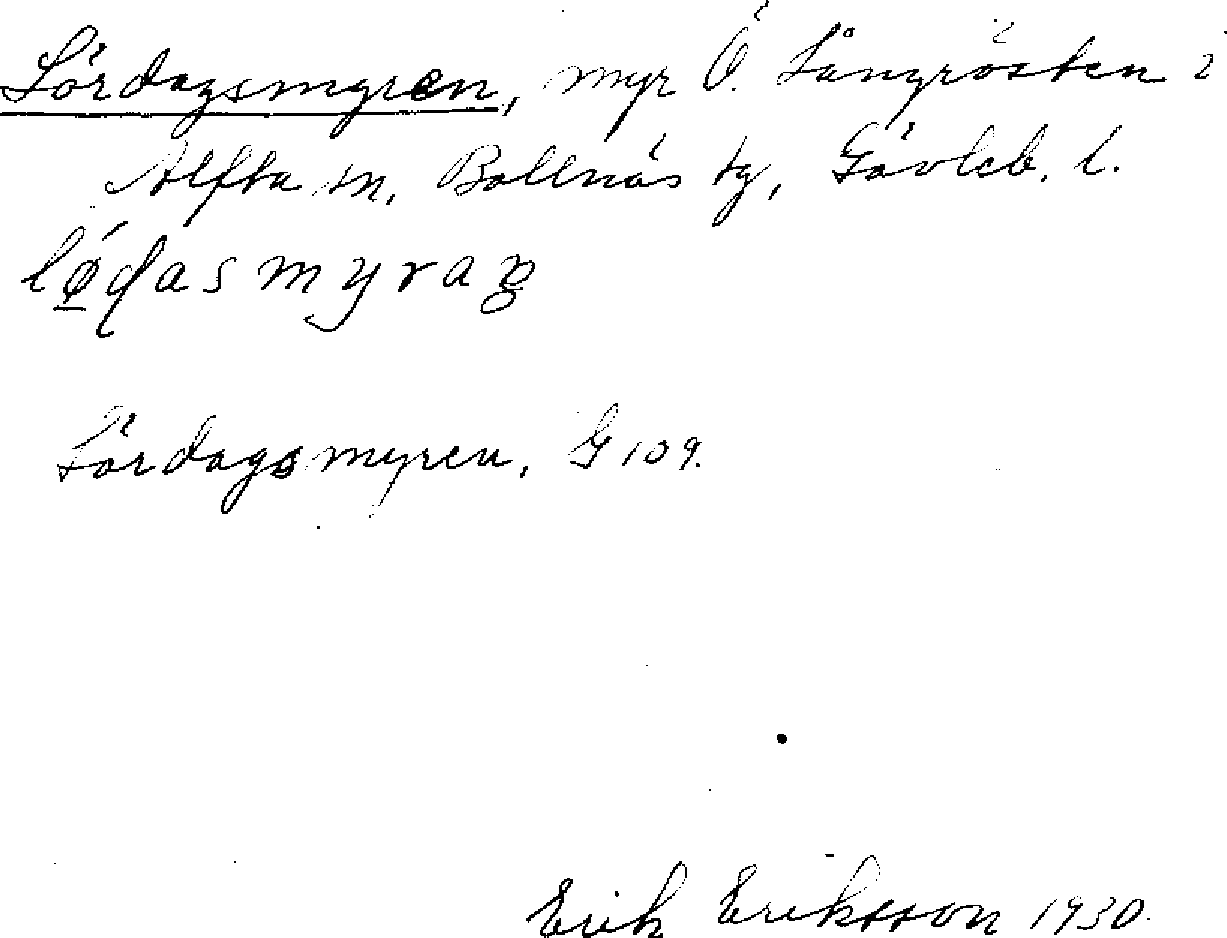 Lördagsmyren, myr Ö. Långrösten i
Alfta sn, Bollnäs tg, Gävleb. l.
Lördagsmyren, G 109.
Erik Eriksson 1930.